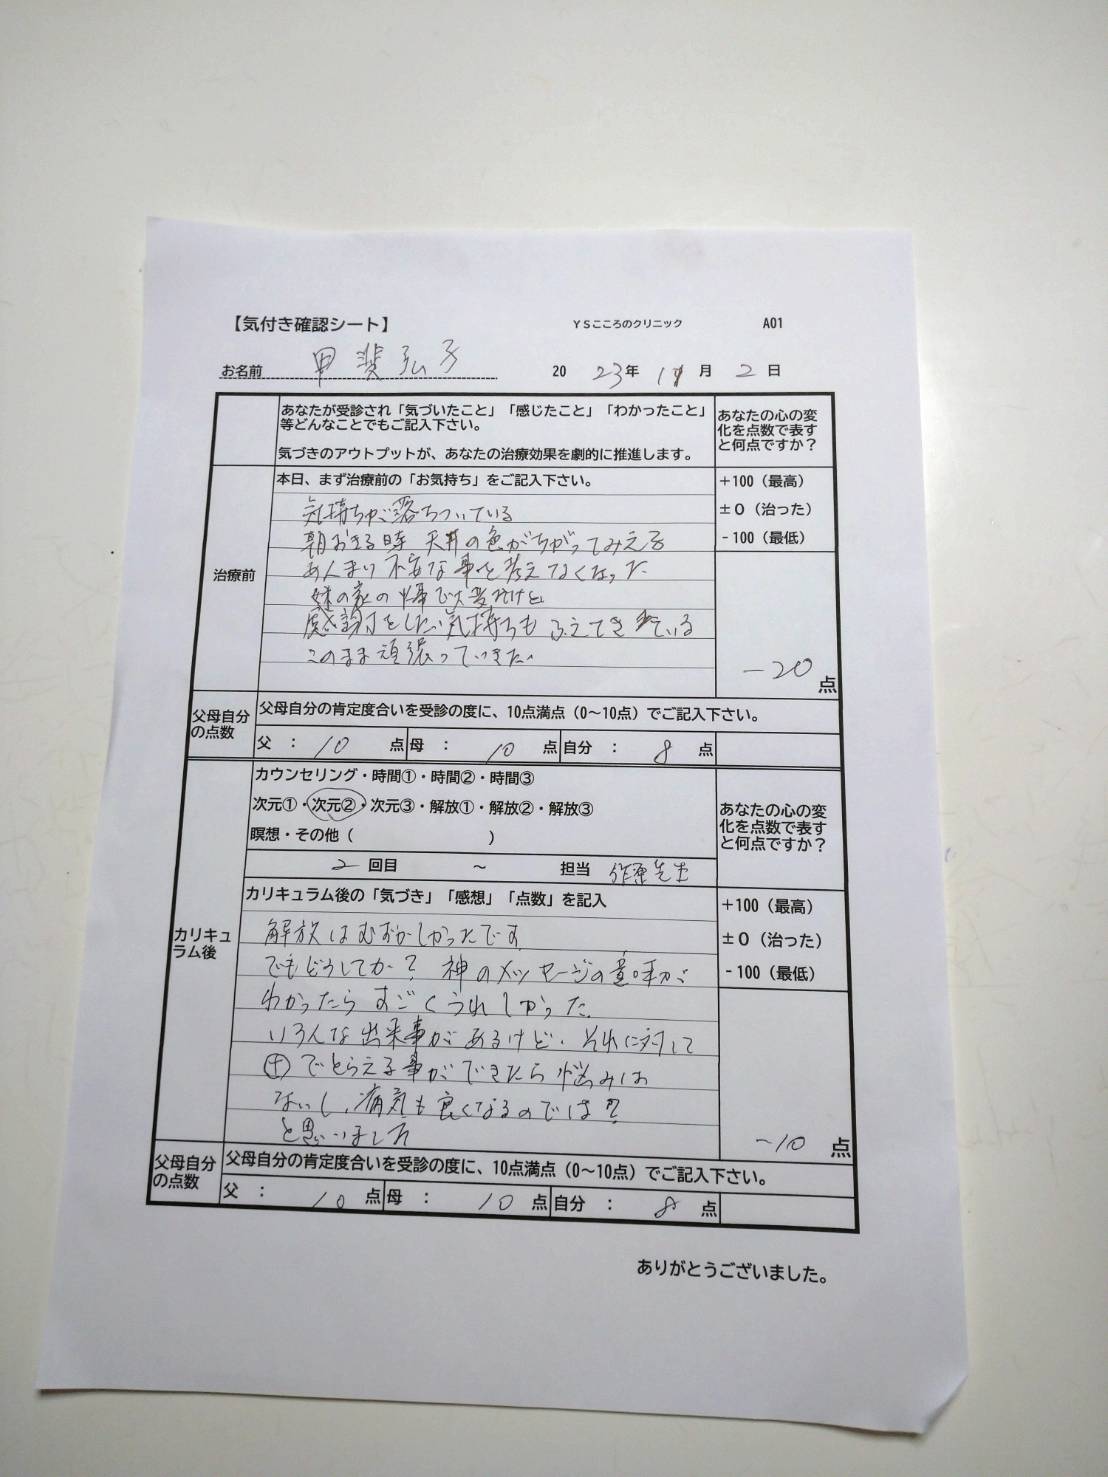 【気付き確認シート】 YSこころのクリニック A01
お名前 甲斐弘子 2023年11月2日
あなたが受診され「気づいたこと」「感じたこと」「わかったこと」
等どんなことでもご記入下さい。
気づきのアウトプットが、あなたの治療効果を劇的に推進します。
あなたの心の変
化を点数で表す
と何点ですか？
治療前
本日、まず治療前の「お気持ち」をご記入下さい。
気持ちが落ちついている
朝おきる時 天井の色がちがってみえる
あんまり不安な事を考えなくなった
妹の家の事で大変だけど
感謝をしたい気持ちもふえてきている
このまま頑張っていきたい
+100（最高）
±0（治った）
-100（最低）
-20点
父母自分
の点数
父母自分の肯定度合いを受診の度に、10点満点（0～10点）でご記入下さい。
父：10点 母：10点 自分：8点
カリキュ
ラム後
カウンセリング・時間①・時間②・時間③
次元①・次元②・次元③・解放①・解放②・解放③
瞑想・その他（ ）
2回目 ～ 担当 先生
あなたの心の変
化を点数で表す
と何点ですか？
カリキュラム後の「気づき」「感想」「点数」を記入
解放はむずかしかったです
でもどうしてか？神のメッセージの意味が
わかったらすごくうれしかった.
いろんな出来事があるけど、それに対して
⊕でとらえる事ができたら悩みは
ないし、病気も良くなるのでは？
と思いました
+100（最高）
±0（治った）
-100（最低）
-10点
父母自分
の点数
父母自分の肯定度合いを受診の度に、10点満点（0～10点）でご記入下さい。
父：10点 母：10点 自分：8点
ありがとうございました。